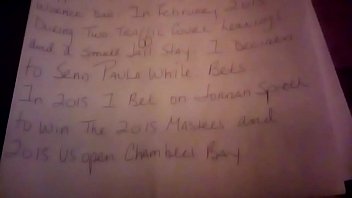 Dad In February 2015
During Two Traffic Court Hearings
and a Small Jail Stay I Decided
to Send Paula White Bets
In 2015 I Bet on Jordan Spieth
to Win The 2015 Masters and
2015 US open Chambers Bay